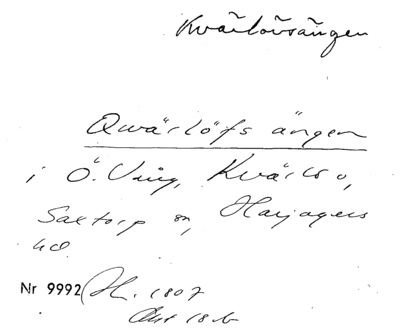 Kvärlövsängen
Qwärlöfs ängen
i Ö. Vång, Kvärlöv,
Saxtorp sn, Harjagers
hd
Nr 9992 H. 1807
Akt 18b